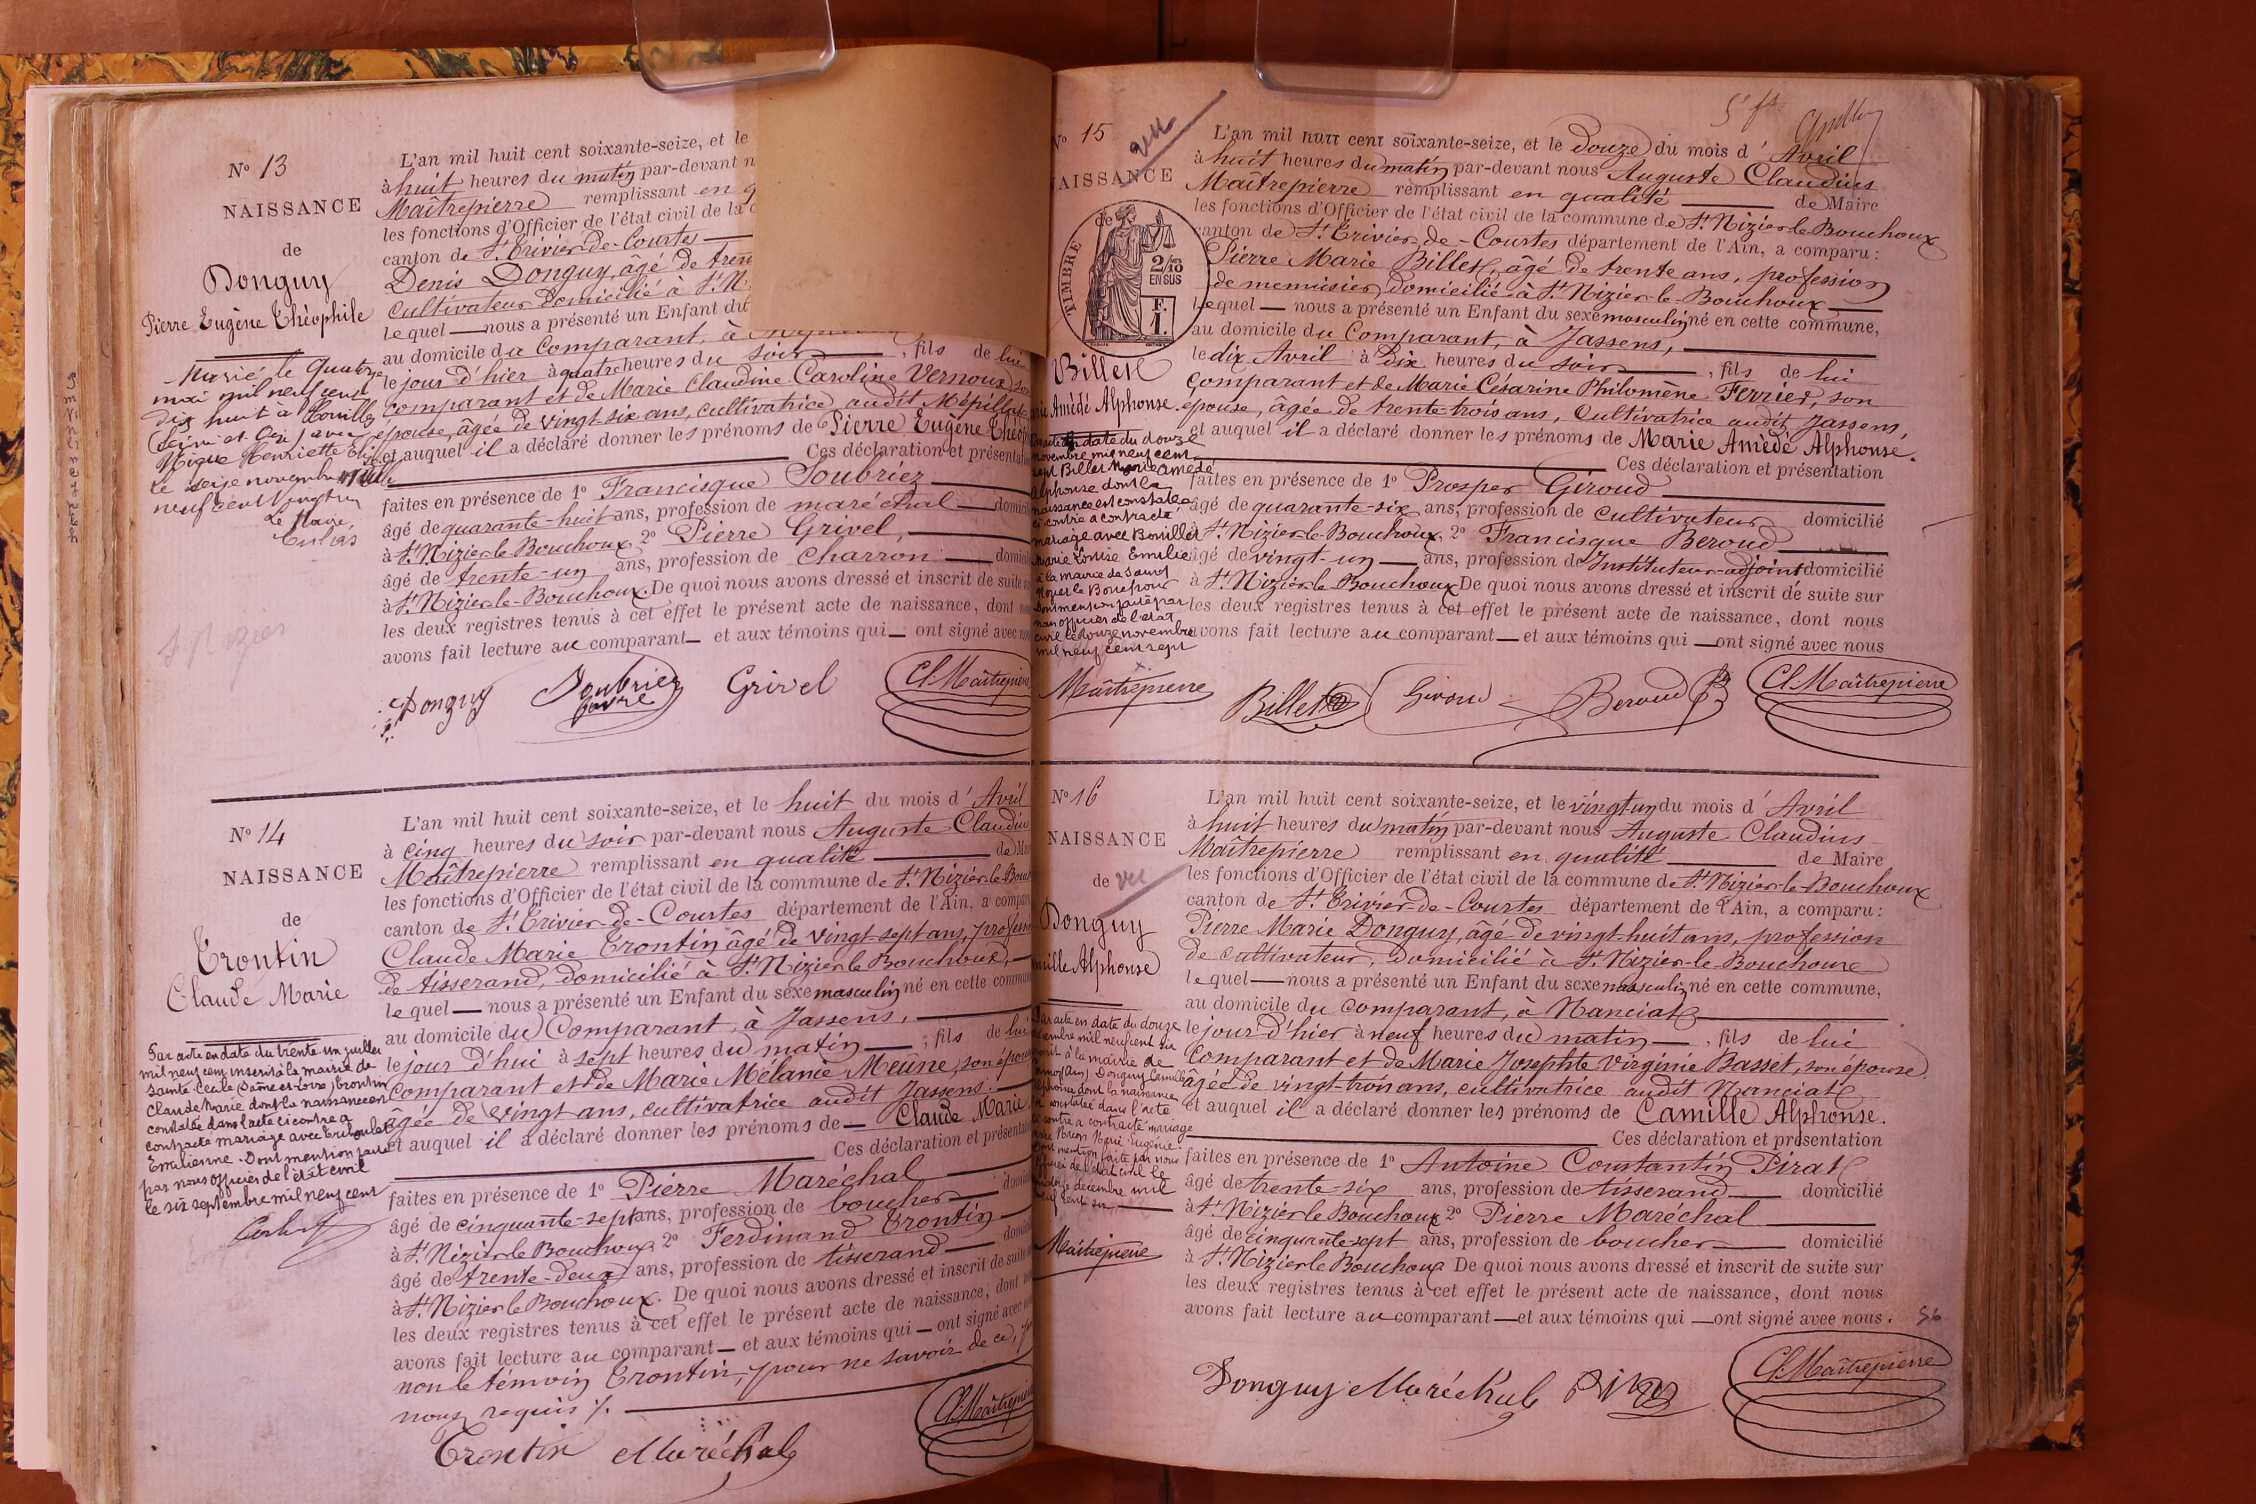 No 13
NAISSANCE
de
Donguy
Pierre Eugène Théophile
Marié le quatre
mai mil neuf cent
dix huit à
avec
Henriette
le seize novembre mil
neuf cent vingt
Le Maire,
L'an mil huit cent soixante-seize, et le
à huit heures du matin par-devant n
Maîtrepierre remplissant en q
les fonctions d'Officier de l'état civil de la c
canton de St Trivier-de-Courtes
Denis Donguy, âgé de tren
cultivateur domicilié à St N
lequel nous a présenté un Enfant du
au domicile du Comparant, à
le jour d'hier à quatre heures du soir , fils de lui
comparant et de Marie Claudine Caroline Vernoux, son
épouse, âgée de vingt six ans, cultivatrice audit Mépillat
et auquel il a déclaré donner les prénoms de Pierre Eugène Théop
Ces déclaration et présentation
faites en présence de 1o Francisque Soubriez
âgé de quarante-huit ans, profession de maréchal domici
à St Nizier-le-Bouchoux 2o Pierre Grivel,
âgé de trente-un ans, profession de charron domici
à St Nizier-le-Bouchoux. De quoi nous avons dressé et inscrit de suite
les deux registres tenus à cet effet le présent acte de naissance, dont
avons fait lecture au comparant et aux témoins qui ont signé avec nous
St Nizier
Donguy Soubriez Grivel Cl. Maîtrepierre
No 14
NAISSANCE
de
Trontin
Claude Marie
Par acte en date du trente-un juillet
mil neuf cent inscrit à la mairie de
Sainte Cécile Saône-et-Loire, Trontin
Claude Marie dont la naissance est
constatée dans l'acte ci contre a
contracté mariage avec
Emilienne. Dont mention faite
par nous officier de l'état civil
le six septembre mil neuf cent
L'an mil huit cent soixante-seize, et le huit du mois d' Avril
à cinq heures du soir par-devant nous Auguste Claudius
Maîtrepierre remplissant en qualité de Mai
les fonctions d'Officier de l'état civil de la commune de St Nizier-le-Bouc
canton de St Trivier-de-Courtes département de l'Ain, a comparu
Claude Marie Trontin âgé de vingt-sept ans, profession
de tisserand, domicilié à St Nizier-le-Bouchoux,
lequel nous a présenté un Enfant du sexe masculin né en cette commune
au domicile du Comparant, à Jassens,
le jour d'hui à sept heures du matin , fils de lui
comparant et de Marie Mélanie Meune, son épouse
âgée de vingt ans, cultivatrice audit Jassens.
et auquel il a déclaré donner les prénoms de Claude Marie
Ces déclaration et présentation
faites en présence de 1o Pierre Maréchal
âgé de cinquante-sept ans, profession de boucher domici
à St Nizier-le-Bouchoux 2o Ferdinand Trontin
âgé de trente-deux ans, profession de tisserand domici
à St Nizier-le-Bouchoux. De quoi nous avons dressé et inscrit de suite
les deux registres tenus à cet effet le présent acte de naissance, dont
avons fait lecture au comparant et aux témoins qui ont signé avec
non le témoin Trontin, pour ne savoir de ce,
nous requis /.
Trontin Maréchal Cl. Maîtrepierre
No 15
vu
NAISSANCE
de
TIMBRE
2/10
EN SUS
F.
1.
Billet
Marie Amédé Alphonse.
en date du douze
novembre mil neuf cent
sept Billet Marie Amédé
Alphonse dont la
naissance est constatée
ci contre a contracté
mariage avec Bouillet
Marie Louise Emilie
à la mairie de
Dont mention faite par
nous officier de l'état
civil le douze novembre
mil neuf cent sept
Maîtrepierre
L'an mil huit cent soixante-seize, et le douze du mois d' Avril
à huit heures du matin par-devant nous Auguste Claudius
Maîtrepierre remplissant en qualité de Maire
les fonctions d'Officier de l'état civil de la commune de St Nizier-le-Bouchoux
canton de St Trivier-de-Courtes département de l'Ain, a comparu:
Pierre Marie Billet, âgé de trente ans, profession
de menuisier, domicilié à St Nizier-le-Bouchoux
lequel nous a présenté un Enfant du sexe masculin né en cette commune,
au domicile du Comparant, à Jassens,
le dix Avril à dix heures du soir , fils de lui
comparant et de Marie Césarine Philomène Ferrier, son
épouse, âgée de trente-trois ans, cultivatrice audit Jassens,
et auquel il a déclaré donner les prénoms de Marie Amédé Alphonse.
Ces déclaration et présentation
faites en présence de 1o Prosper Giroud
âgé de quarante-six ans, profession de cultivateur domicilié
à St Nizier-le-Bouchoux, 2o Francisque Beroud
âgé de vingt-un ans, profession d'Instituteur-adjoint domicilié
à St Nizier-le-Bouchoux De quoi nous avons dressé et inscrit de suite sur
les deux registres tenus à cet effet le présent acte de naissance, dont nous
avons fait lecture au comparant et aux témoins qui ont signé avec nous
Billet Giroud Beroud Cl. Maîtrepierre
No 16
NAISSANCE
de vu
Donguy
Camille Alphonse
Par acte en date du douze
décembre mil neuf cent un
inscrit à la mairie de
(Ain) Donguy Camille
Alphonse dont la naissance
est constatée dans l'acte
ci contre a contracté mariage
avec Marie Eugénie
Dont mention faite par nous
officier de l'état civil le
décembre mil
neuf cent un
Maîtrepierre
L'an mil huit cent soixante-seize, et le vingt un du mois d' Avril
à huit heures du matin par-devant nous Auguste Claudius
Maîtrepierre remplissant en qualité de Maire
les fonctions d'Officier de l'état civil de la commune de St Nizier-le-Bouchoux
canton de St Trivier-de-Courtes département de l'Ain, a comparu:
Pierre Marie Donguy, âgé de vingt-huit ans, profession
de cultivateur, domicilié à St Nizier-le-Bouchoux
lequel nous a présenté un Enfant du sexe masculin né en cette commune,
au domicile du comparant, à Nanciat
le jour d'hier à neuf heures du matin , fils de lui
comparant et de Marie Josephte Virginie Basset, son épouse,
âgée de vingt-trois ans, cultivatrice audit Nanciat
et auquel il a déclaré donner les prénoms de Camille Alphonse.
Ces déclaration et présentation
faites en présence de 1o Antoine Constantin Pirat
âgé de trente-six ans, profession de tisserand domicilié
à St Nizier-le-Bouchoux 2o Pierre Maréchal
âgé de cinquante-sept ans, profession de boucher domicilié
à St Nizier-le-Bouchoux De quoi nous avons dressé et inscrit de suite sur
les deux registres tenus à cet effet le présent acte de naissance, dont nous
avons fait lecture au comparant et aux témoins qui ont signé avec nous.
56
Donguy Maréchal Pirat Cl. Maîtrepierre